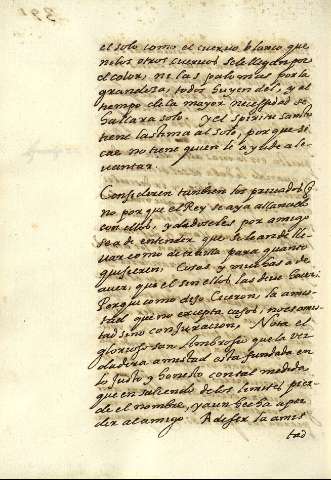 el solo como el cuervo blanco que
ni los otros cuervos se le llegan por
el color, ni las palomas por la
grandeza, todos huyen del, y al
tiempo de la mayor necessidad se
hallara solo. y el spiritu sancto
tiene lastima al solo, porque si
cae no tiene quien le ayude a le-
uantar.
Consideren tambien los priuados q
no por que el Rey se aya allanado
con ellos, y dadoseles por amigo
se a de entender que le an de lle-
uar como de trailla para quanto
quisieren. Cosas y muchas a de
auer, que el sin ellos las deue hazer
Porque como dixo Ciceron la amis-
tad que no excepta casos, no es amis-
tad sino conjuracion. Nota el
glorioso san Ambrosio que la ver
dadera amistad esta fundada en
lo justo y honesto con tal medida
que en saliendo de los limites pier-
de el nombre, y aun hecha a per-
der al amigo. A de ser la amis
tad